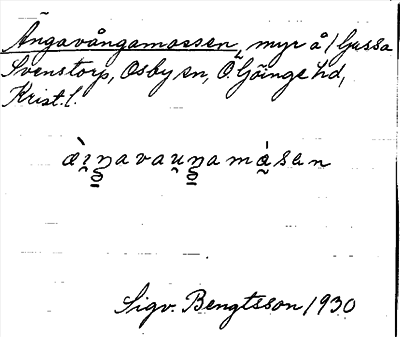 Ängavångamossen, myr å 1 Gussa
Svenstorp, Osby sn, Ö. Göinge hd,
Krist. l.
æ̀i̯ŋavau̯ŋamåsen
Sigv. Bengtsson 1930